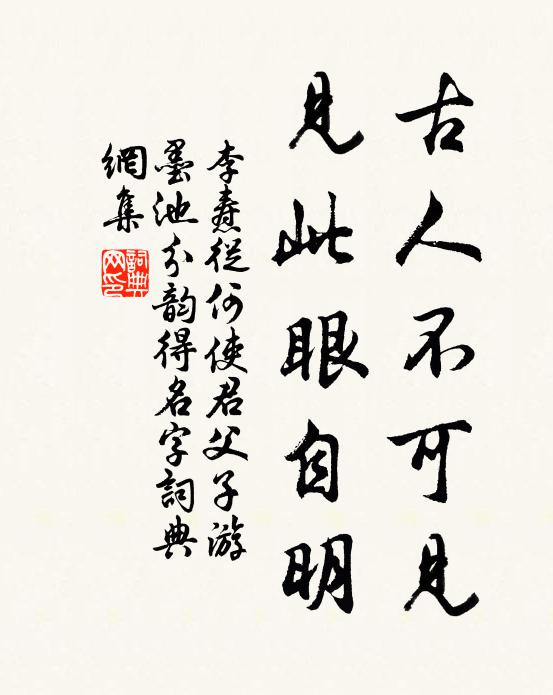 古人不可見
見此眼自明
李燾從何使君父子游
墨池分韵得名字詞典
網集
詞典網印